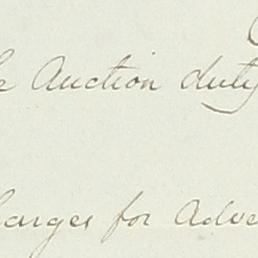 e Auction duty
harges for Adve